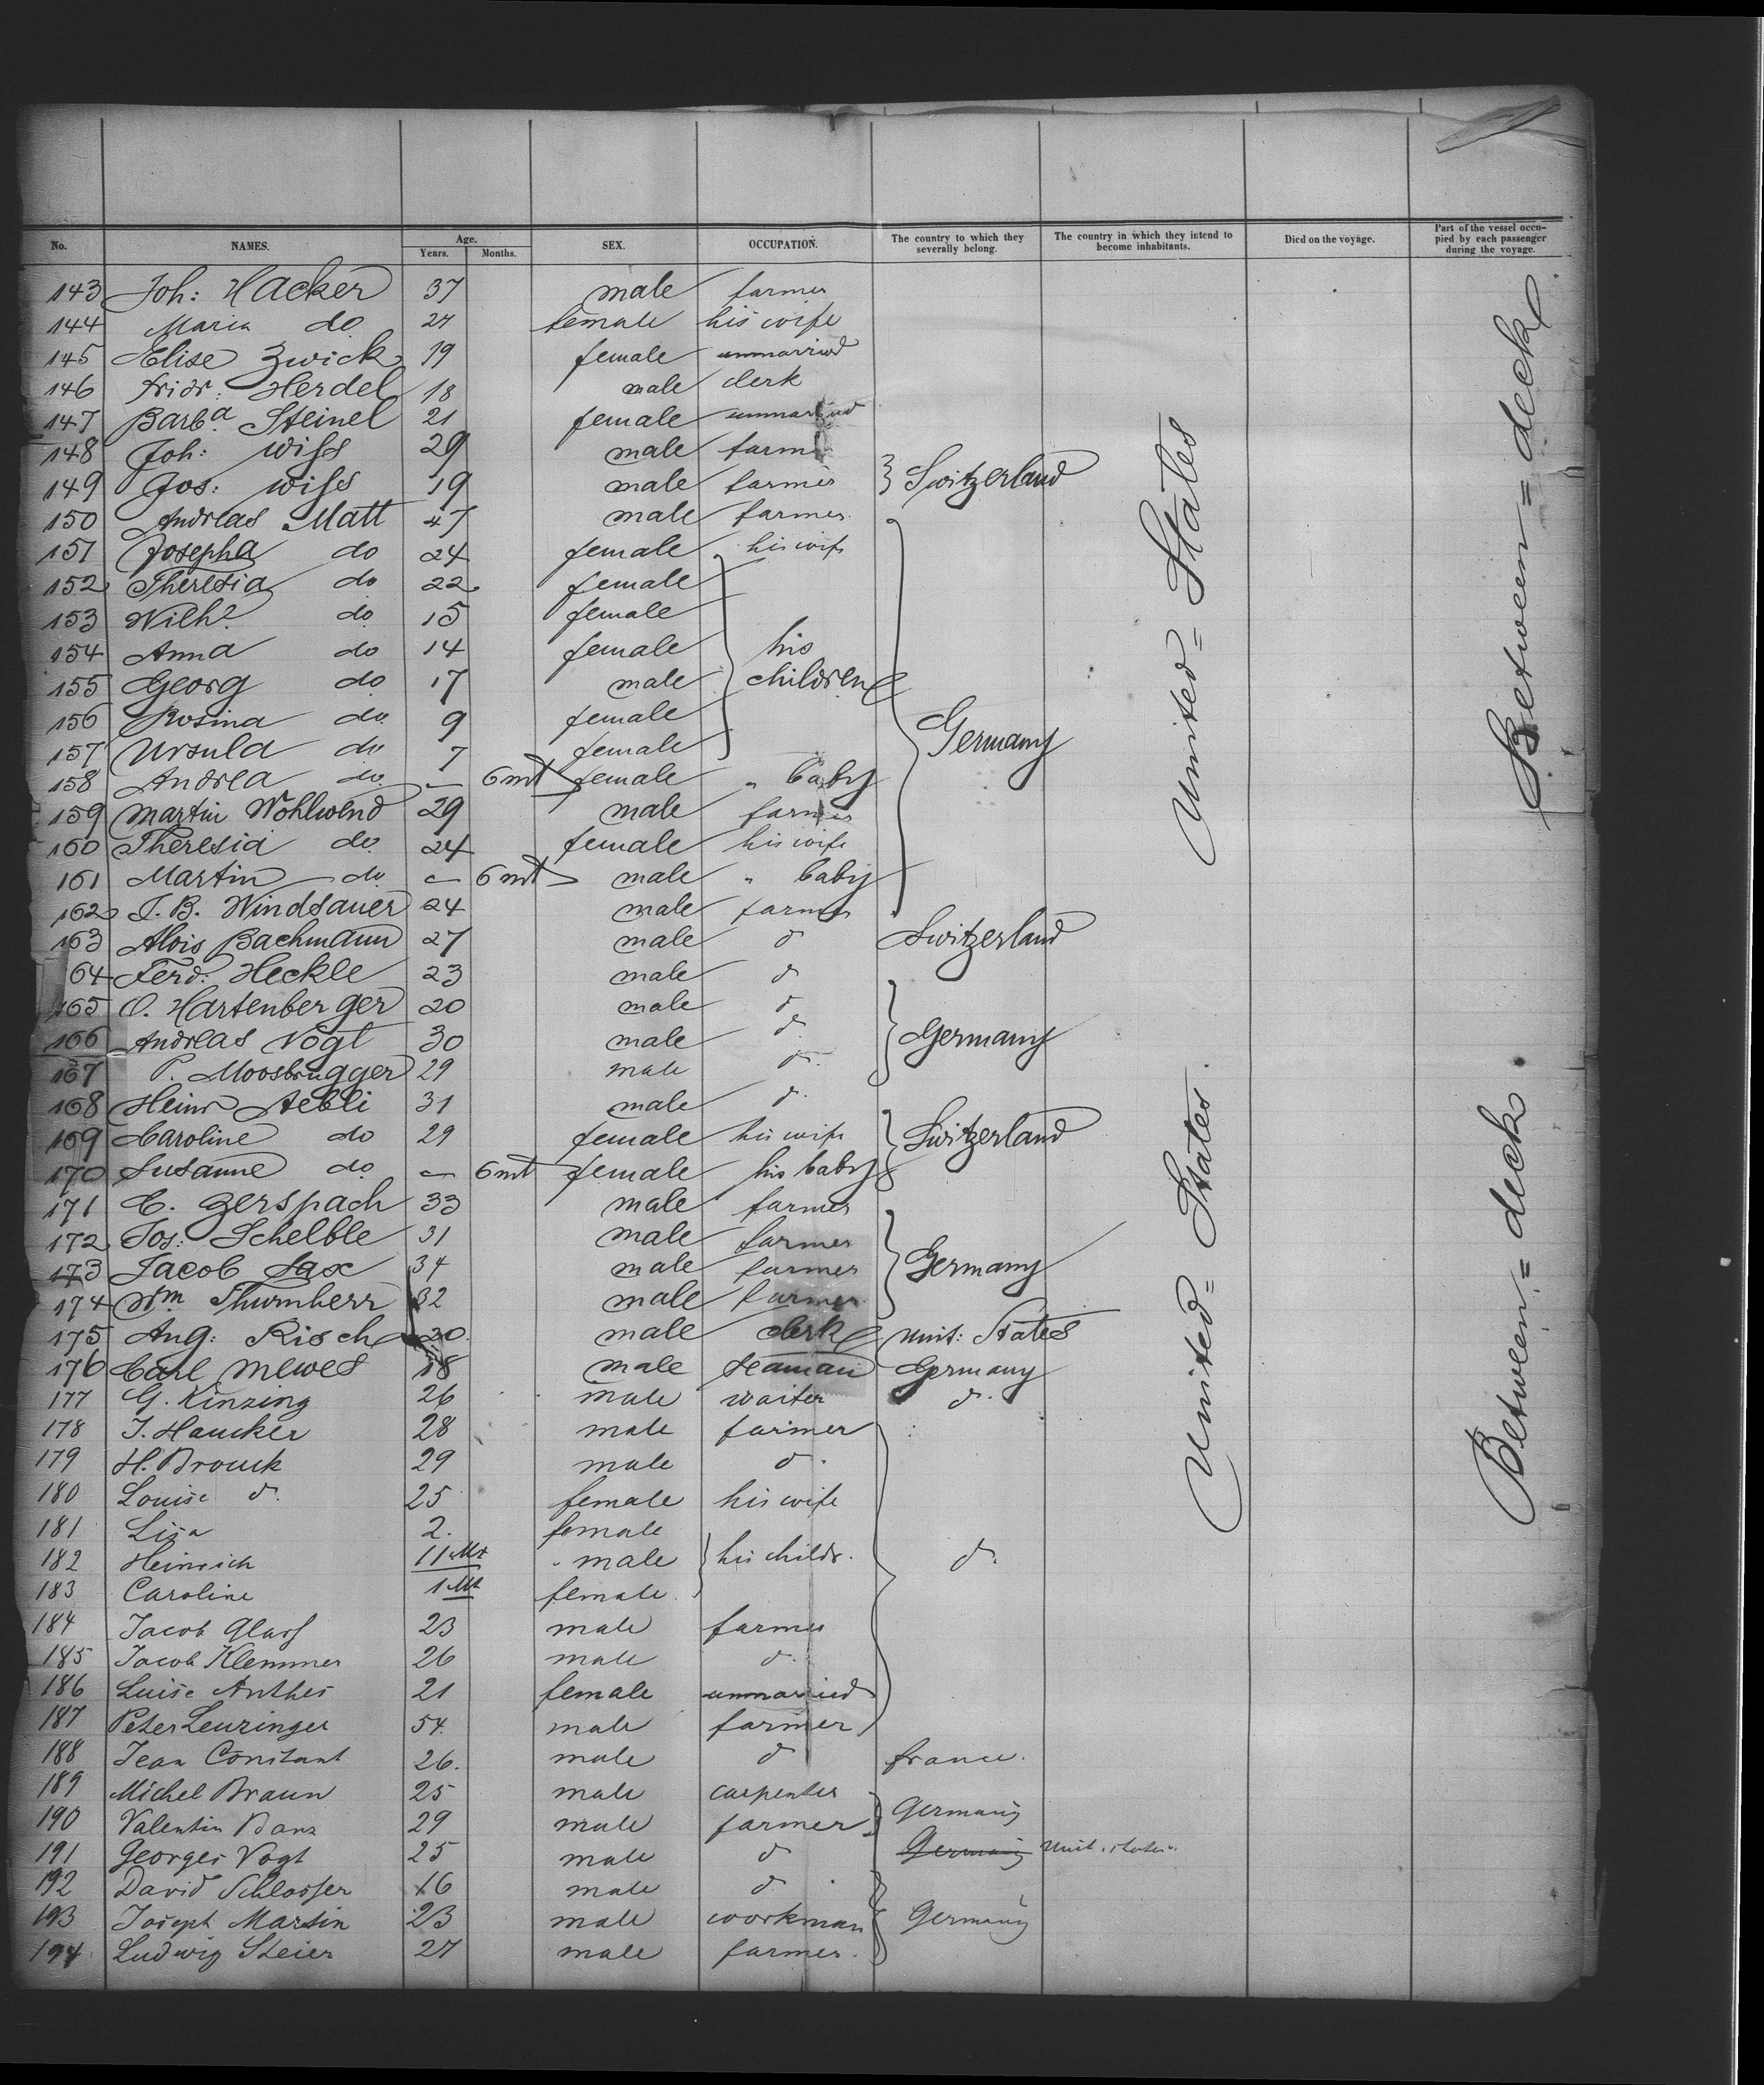 No. NAMES. Age. Years. Months. SEX. OCCUPATION. The country to which they severally belong. The country in which they intend to become inhabitants. Died on the voyage. Part of the vessel occupied by each passenger during the voyage.
143 Joh: Hacker 37 male farmer
144 Maria do 27 female his wife
145 Elise Zwick 19 female unmarried
146 Fridr: Herdel 18 male clerk
147 Barbª Steinel 21 female unmarried
148 Joh: Wiss 29 male farm
149 Jos: Wiss 19 male farmer } Switzerland
150 Andreas Matt 47 male farmer
151 Josepha do 24 female his wife
152 Theresia do 22 female
153 Wilhe do 15 female
154 Anna do 14 female his
155 Georg do 17 male children
156 Rosina do 9 female
157 Ursula do 7 female Germany
158 Andrea do — 6 mt female " baby
159 Martin Wohlwend 29 male farmer
160 Theresia do 24 female his wife
161 Martin do — 6 mt male " baby
162 J. B. Windsauer 24 male farmer
163 Alois Bachmann 27 male do Switzerland
64 Ferd: Heckle 23 male do
165 O. Hartenberger 20 male do
166 Andreas Vogt 30 male do Germany
167 P. Moosbrugger 29 male do
168 Heinr Aebli 31 male do
169 Caroline do 29 female his wife Switzerland
170 Susanne do — 6 mt female his baby
171 C. Zerspach 33 male farmer
172 Jos: Schelble 31 male farmer
173 Jacob Sax 34 male farmer Germany
174 Wm Thurnherr 32 male farmer
175 Aug: Risch 20 male clerk Unit: States
176 Carl Mewes 18 male seaman Germany
177 G. Kinzing 26 male waiter do.
178 J. Haucker 28 male farmer
179 H. Brouck 29 male do.
180 Louise do. 25 female his wife
181 Lisa 2. female
182 Heinrich 11 Mt male his childr. do.
183 Caroline 1 Mt female
184 Jacob Glass 23 male farmer
185 Jacob Klemmer 26 male do.
186 Luise Anthes 21 female unmarried
187 Peter Leuzinger 54. male farmer
188 Jean Constant 26. male do france.
189 Michel Braun 25 male carpenter
190 Valentin Banz 29 male farmer Germany
191 Georges Vogt 25 male do Germany Unit. States.
192 David Schlosser 16 male do
193 Joseph Martin 23 male workman Germany
194 Ludwig Steier 27 male farmer.
United = States
United = States.
Between = deck
Between = deck.